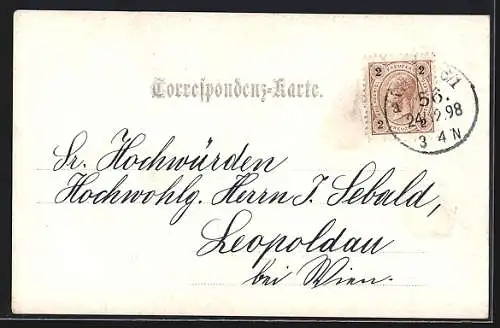 Correspondenz-Karte.
2 2
2 2
6/1
56.
98
3 4 N
Sr. Hochwürden
Hochwohlg. Herrn J. Sebald,
Leopoldau
bei Wien.